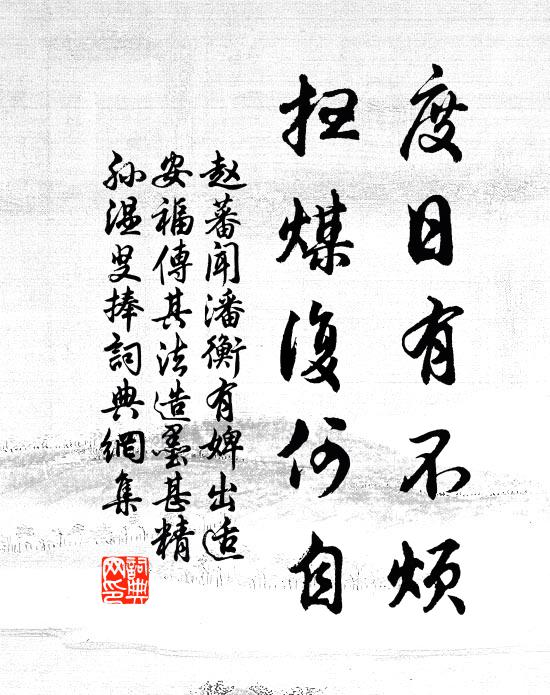 度日有不煩
扫煤復何自
赵蕃聞潘衡有婢出适
安福傳其法造墨甚精
孙温叟捧詞典網集
詞典网印